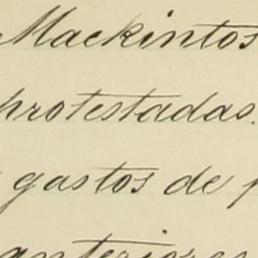 Mackintos
protestadas.
gastos de p
anteriores